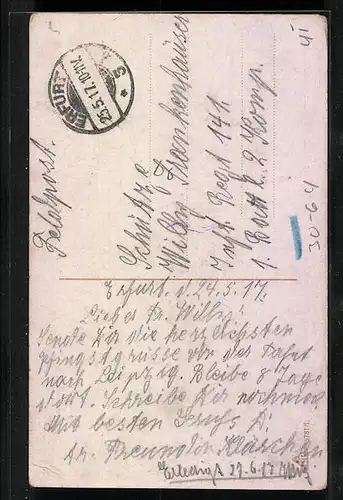 ERFURT
25.5.17. 10-11V.
* 5
Feldpost.
Schütze
Willy Frankenhäuser
Inft. Regt. 141.
1. Batl. 2. Komp.
VI
30-64
Erfurt. d. 24.5.17.
Liebes Br. Willy!
Sende Dir die herzlichsten
Pfingstgrüsse vor der Fahrt
nach Leipzig. Bleibe 8 Tage
dort. Schreibe Dir nochmal
Mit besten Gruss D.
tr. Freundin Kläschen
Erledigt 29.6.17